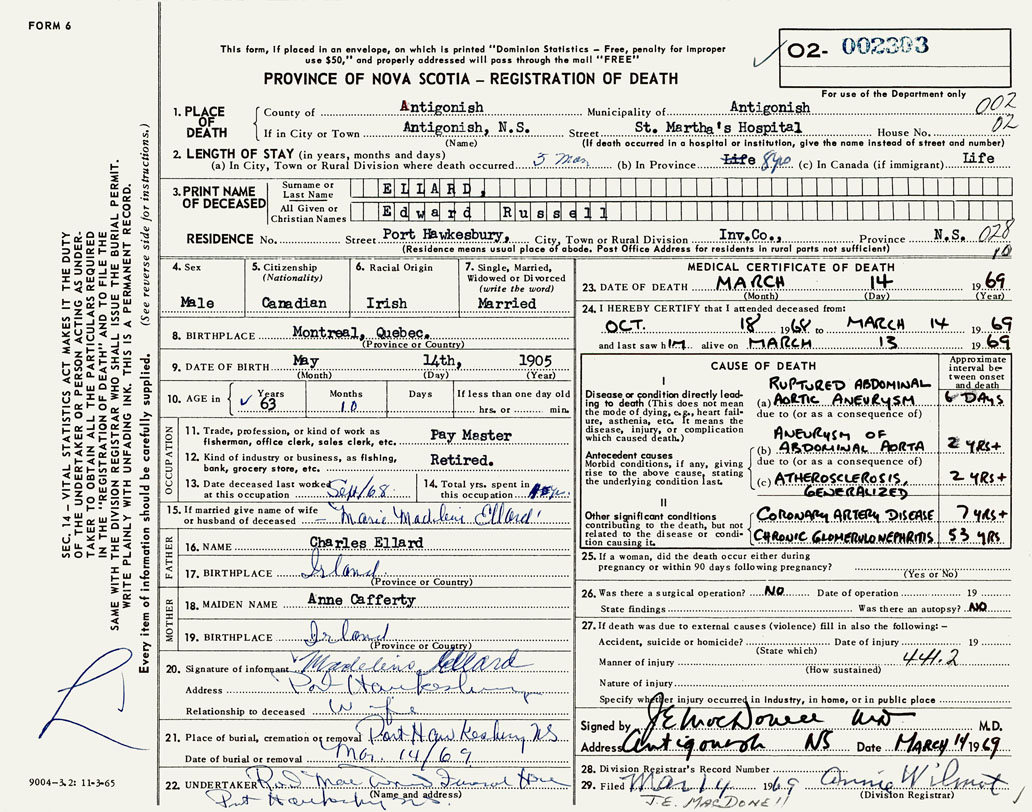 FORM 6
This form, if placed in an envelope, on which is printed "Dominion Statistics – Free, penalty for improper
use $50," and properly addressed will pass through the mail "FREE"
PROVINCE OF NOVA SCOTIA – REGISTRATION OF DEATH
02- 002303
For use of the Department only
002
02
1. PLACE OF DEATH County of Antigonish Municipality of Antigonish
If in City or Town Antigonish, N.S. Street St. Martha's Hospital House No.
(Name) (If death occurred in a hospital or institution, give the name instead of street and number)
2. LENGTH OF STAY (in years, months and days)
(a) In City, Town or Rural Division where death occurred (b) In Province Life 8yrs (c) In Canada (if immigrant) Life
3. PRINT NAME OF DECEASED Surname or Last Name ELLARD,
All Given or Christian Names Edward Russell
RESIDENCE No. Street Port Hawkesbury, City, Town or Rural Division Inv.Co., Province N.S. 028
(Residence means usual place of abode. Post Office Address for residents in rural parts not sufficient) 10
4. Sex Male
5. Citizenship (Nationality) Canadian
6. Racial Origin Irish
7. Single, Married, Widowed or Divorced (write the word) Married
8. BIRTHPLACE Montreal, Quebec.
(Province or Country)
9. DATE OF BIRTH May 14th, 1905
(Month) (Day) (Year)
10. AGE in Years 63 Months 10 Days If less than one day old hrs. or min.
OCCUPATION
11. Trade, profession or kind of work as fisherman, office clerk, sales clerk, etc. Pay Master
12. Kind of industry or business, as fishing, bank, grocery store, etc. Retired.
13. Date deceased last worked at this occupation Sept/68
14. Total yrs. spent in this occupation
15. If married give name of wife or husband of deceased – Marie Madeleine Ellard
FATHER
16. NAME Charles Ellard
17. BIRTHPLACE Irland
(Province or Country)
MOTHER
18. MAIDEN NAME Anne Cafferty
19. BIRTHPLACE Irland
(Province or Country)
20. Signature of informant Madeleine Ellard
Address Port Hawkesbury
Relationship to deceased Wife
21. Place of burial, cremation or removal Port Hawkesbury NS
Date of burial or removal Mar. 14/69
22. UNDERTAKER
(Name and address)
Port Hawkesbury N.S.
MEDICAL CERTIFICATE OF DEATH
23. DATE OF DEATH MARCH 14 1969
(Month) (Day) (Year)
24. I HEREBY CERTIFY that I attended deceased from:
OCT. 18 1968 to MARCH 14 1969
and last saw him alive on MARCH 13 1969
CAUSE OF DEATH
Approximate interval between onset and death
I
Disease or condition directly leading to death (This does not mean the mode of dying, e.g., heart failure, asthenia, etc. It means the disease, injury, or complication which caused death.)
(a) RUPTURED ABDOMINAL AORTIC ANEURYSM 6 DAYS
due to (or as a consequence of)
Antecedent causes
Morbid conditions, if any, giving rise to the above cause, stating the underlying condition last.
(b) ANEURYSM OF ABDOMINAL AORTA 2 YRS+
due to (or as a consequence of)
(c) ATHEROSCLEROSIS, GENERALIZED 2 YRS+
II
Other significant conditions contributing to the death, but not related to the disease or condition causing it.
CORONARY ARTERY DISEASE 7 YRS+
CHRONIC GLOMERULONEPHRITIS 53 YRS
25. If a woman, did the death occur either during
pregnancy or within 90 days following pregnancy?
(Yes or No)
26. Was there a surgical operation? NO Date of operation 19
State findings Was there an autopsy? NO
27. If death was due to external causes (violence) fill in also the following: –
Accident, suicide or homicide? Date of injury 19
(State which)
Manner of injury 441.2
(How sustained)
Nature of injury
Specify whether injury occurred in industry, in home, or in public place
Signed by J.E. MacDonell MD M.D.
Address Antigonish NS Date MARCH 14 1969
28. Division Registrar's Record Number
29. Filed Mar 14 1969 Annie Wilmot
(Division Registrar)
J.E. MACDONELL
SEC. 14 – VITAL STATISTICS ACT MAKES IT THE DUTY
OF THE UNDERTAKER OR PERSON ACTING AS UNDER-
TAKER TO OBTAIN ALL THE PARTICULARS REQUIRED
IN THE "REGISTRATION OF DEATH" AND TO FILE THE
SAME WITH THE DIVISION REGISTRAR WHO SHALL ISSUE THE BURIAL PERMIT.
WRITE PLAINLY WITH UNFADING INK. THIS IS A PERMANENT RECORD.
Every item of information should be carefully supplied. (See reverse side for instructions.)
9004-3.2: 11-3-65